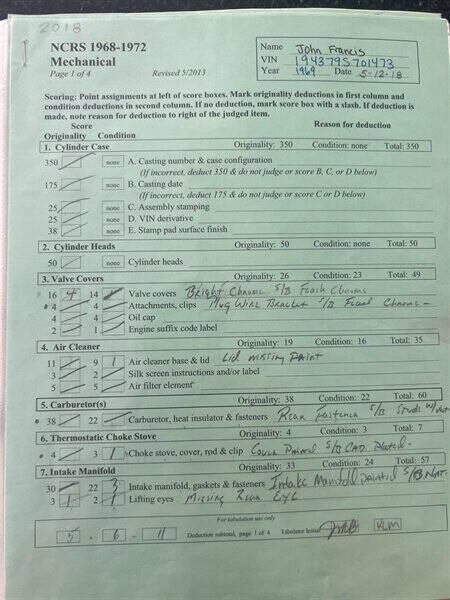 2018
NCRS 1968-1972
Mechanical
Page 1 of 4 Revised 5/2013
Name John Francis
VIN 194379S701473
Year 1969 Date 5-12-18
Scoring: Point assignments at left of score boxes. Mark originality deductions in first column and
condition deductions in second column. If no deduction, mark score box with a slash. If deduction is
made, note reason for deduction to right of the judged item.
Score Reason for deduction
Originality Condition
1. Cylinder Case Originality: 350 Condition: none Total: 350
350 none A. Casting number & case configuration
(If incorrect, deduct 350 & do not judge or score B, C, or D below)
175 none B. Casting date
(If incorrect, deduct 175 & do not judge or score C or D below)
25 none C. Assembly stamping
25 none D. VIN derivative
38 none E. Stamp pad surface finish
2. Cylinder Heads Originality: 50 Condition: none Total: 50
50 none Cylinder heads
3. Valve Covers Originality: 26 Condition: 23 Total: 49
16 4 14 Valve covers Bright Chrome S/B Flash Chrome
4 4 Attachments, clips Plug Wire Bracket S/B Flash Chrome -
4 4 Oil cap
2 1 Engine suffix code label
4. Air Cleaner Originality: 19 Condition: 16 Total: 35
11 9 1 Air cleaner base & lid Lid missing Paint
3 2 Silk screen instructions and/or label
5 5 Air filter element
5. Carburetor(s) Originality: 38 Condition: 22 Total: 60
38 22 Carburetor, heat insulator & fasteners Rear Fastener S/B Studs w/Nut
6. Thermostatic Choke Stove Originality: 4 Condition: 3 Total: 7
4 3 1 Choke stove, cover, rod & clip Cover Painted S/B CAD Plated -
7. Intake Manifold Originality: 33 Condition: 24 Total: 57
30 22 3 Intake manifold, gaskets & fasteners Intake Manifold Painted S/B Nat.
3 1 2 1 Lifting eyes Missing Rear Eye
For tabulation use only
5 - 6 - 11 Deduction subtotal, page 1 of 4 Tabulator Initial KLM